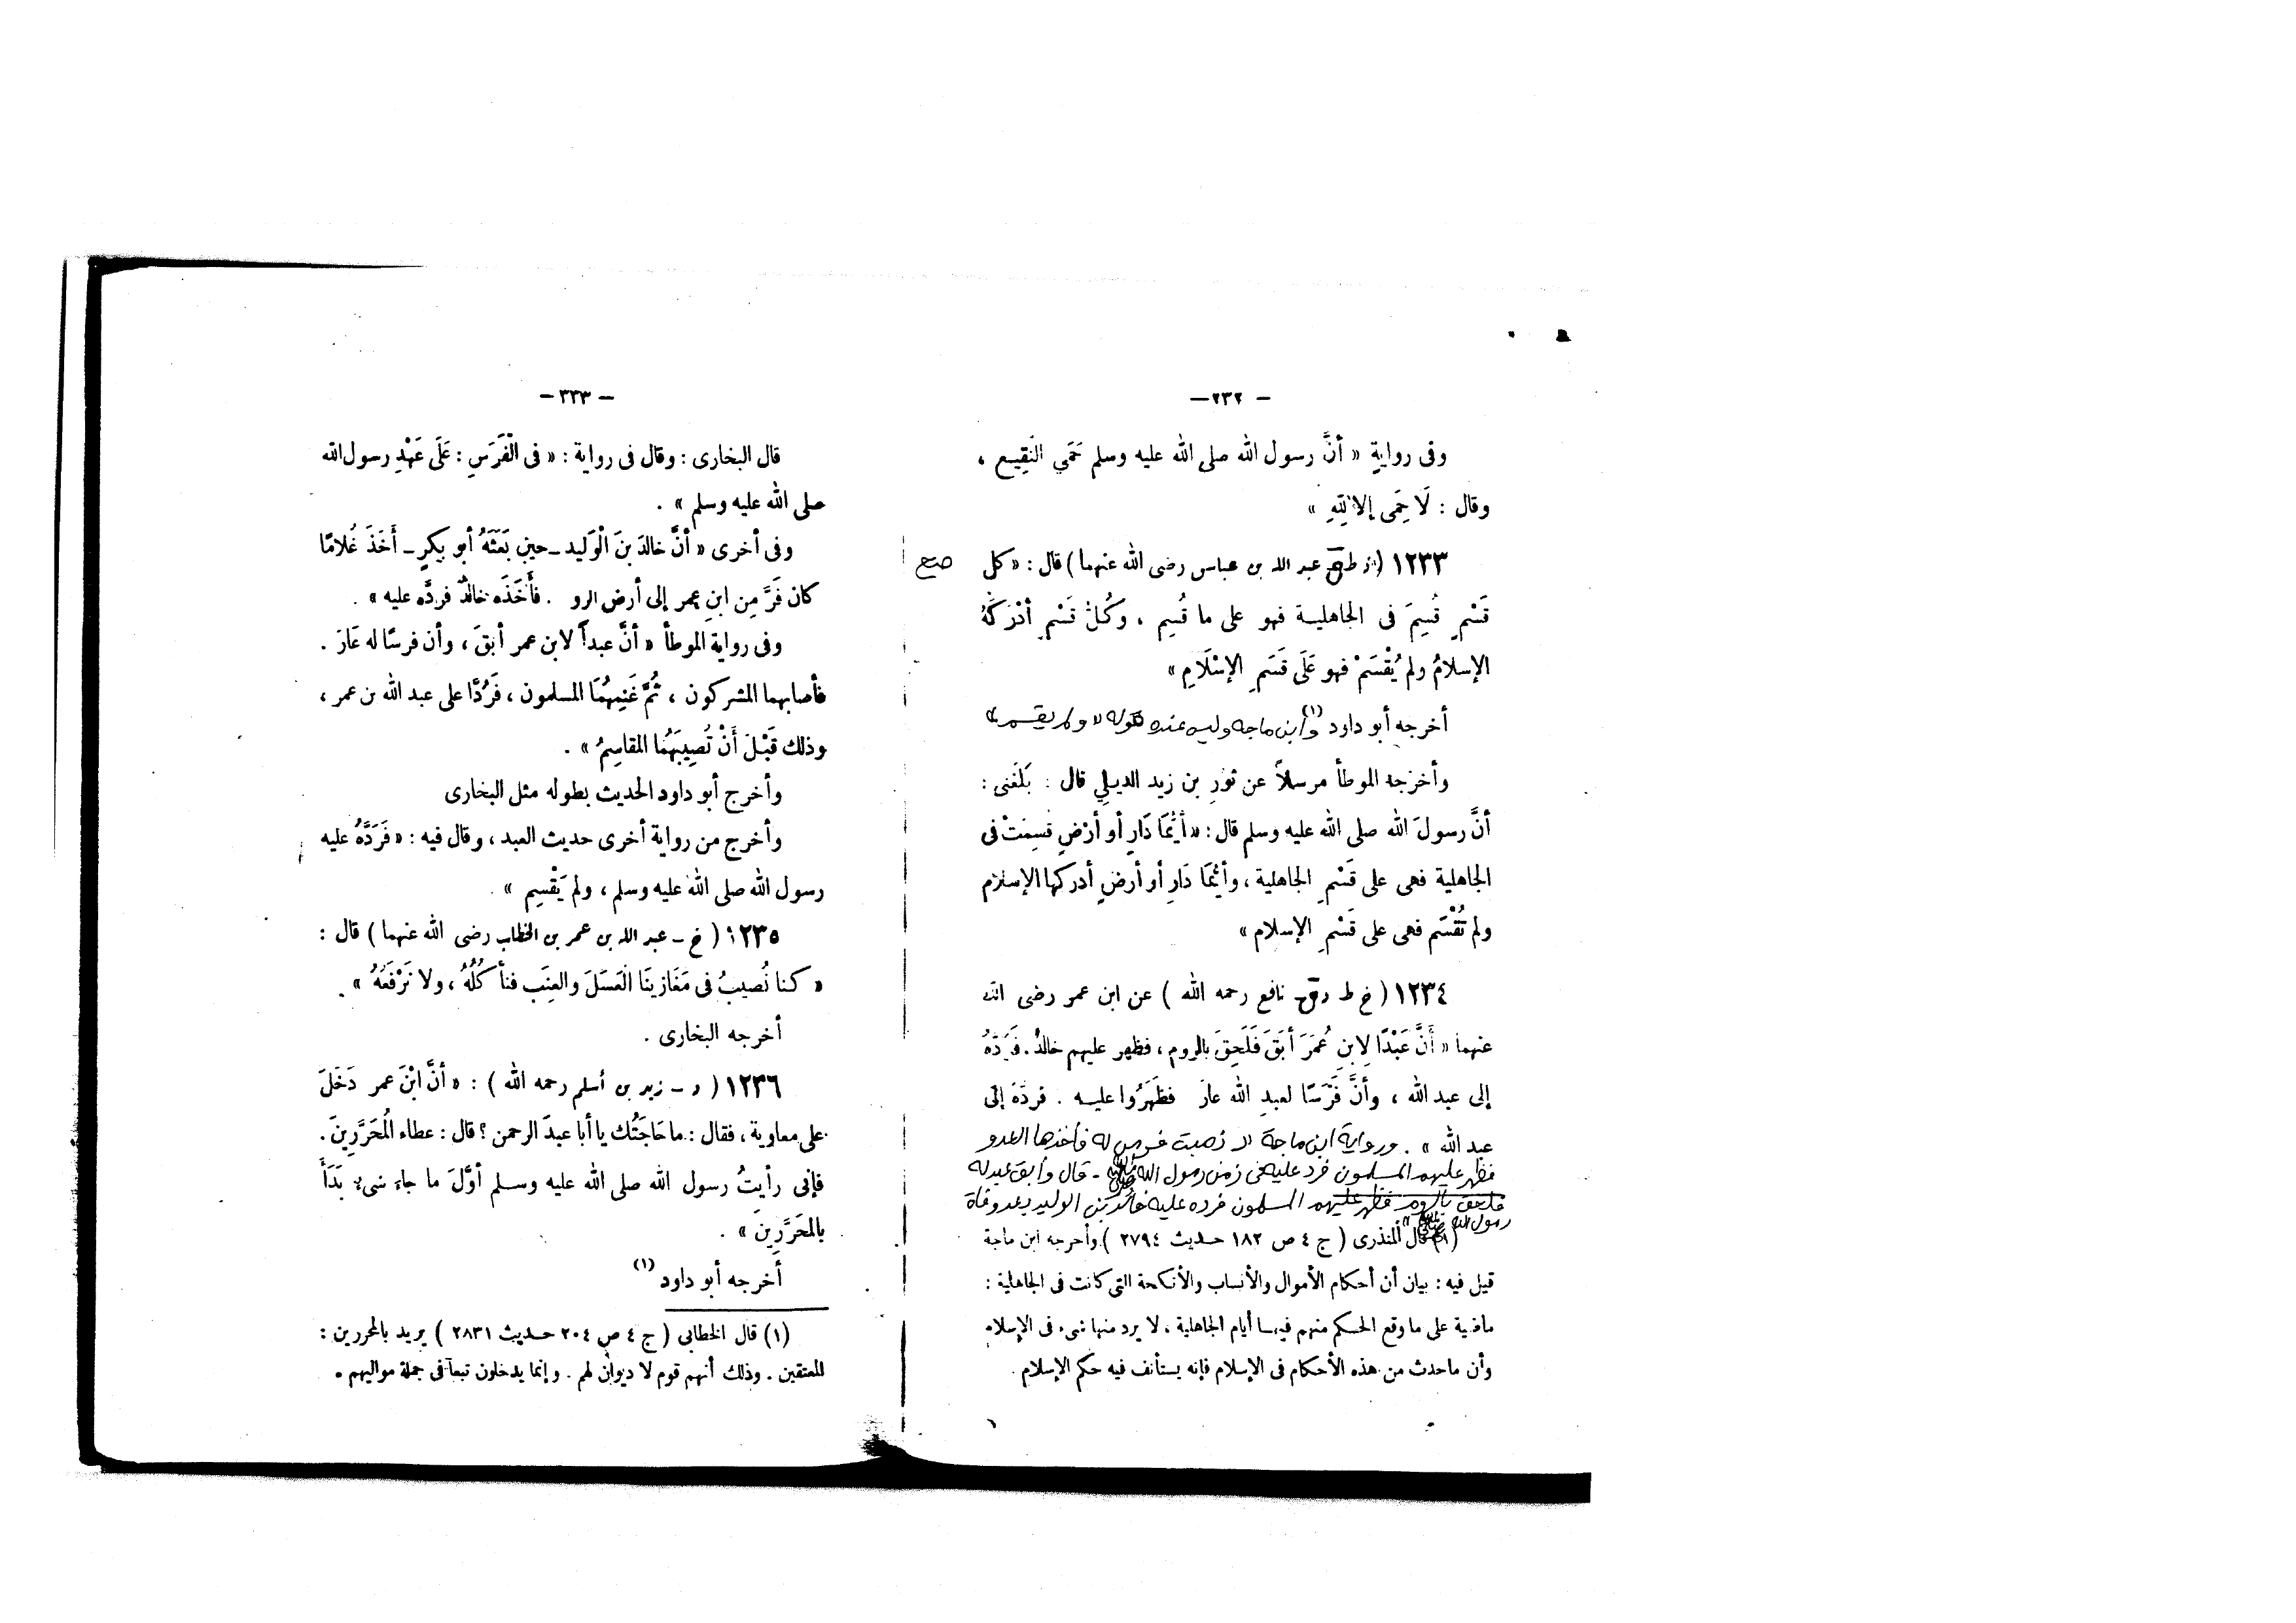 — ٢٣٢ —
وفى روايةٍ « أنَّ رسول الله صلى الله عليه وسلم حَمَي النَّقِيع ،
وقال : لَا حِمَى إلا لِلهِ »
١٢٣٣ ( د ط عبد الله بن عباس رضى الله عنهما ) قال : « كل
صح
قَسْمٍ قُسِمَ فى الجاهلية فهو على ما قُسِم ، وكُلُّ قَسْمٍ أدْرَكَهُ
الإسلامُ ولم يُقْسَمْ فهو عَلَى قَسْمِ الإسْلَامِ »
أخرجه أبو داود (١) وابن ماجه وليس عنده قوله « ولم يقسم »
وأخرجه الموطأ مرسلاً عن ثورِ بن زيد الديلي قال : بَلَغَنى :
أنَّ رسولَ الله صلى الله عليه وسلم قال : « أيُّمَا دَارٍ أو أرْضٍ قسِمَتْ فى
الجاهلية فهى على قَسْمِ الجاهلية ، وأيُّمَا دَارٍ أو أرضٍ أدركها الإسلام
ولم تُقْسَم فهى على قَسْمِ الإسلام »
١٢٣٤ ( خ ط د نافع رحمه الله ) عن ابن عمر رضى الله
عنهما « أَنَّ عَبْدًا لِابنِ عُمَرَ أبَقَ فَلَحِقَ بالروم ، فظهر عليهم خالدٌ . فَرَدَّهُ
إلى عبد الله ، وأنَّ فَرَسًا لعبدِ الله عارَ فظَهَرُوا عليه . فردَّهَ إلى
عبد الله » . ورواية ابن ماجة « ذهبت فرس له فأخذها العدو
فظهر عليهم المسلمون فرد عليه فى زمن رسول الله ﷺ - قال وأبق عبد له
فلحق بالروم فظهر عليهم المسلمون فرده عليه خالد بن الوليد بعد وفاة
رسول الله ﷺ »
(١) قال المنذرى ( ج ٤ ص ١٨٢ حديث ٢٧٩٤ ) وأخرجه ابن ماجة
قيل فيه : بيان أن أحكام الأموال والأنساب والأنكحة التى كانت فى الجاهلية :
ماضية على ما وقع الحكم منهم فيها أيام الجاهلية ، لا يرد منها شىء فى الإسلام
وأن ماحدث من هذه الأحكام فى الإسلام فإنه يستأنف فيه حكم الإسلام .
— ٣٣٣ —
قال البخارى : وقال فى رواية : « فى الْفَرَسِ : عَلَى عَهْدِ رسول الله
صلى الله عليه وسلم » .
وفى أخرى « أنَّ خالدَ بنَ الْوَليد ـ حين بَعَثَهُ أبو بكرٍ ـ أخَذَ غُلامًا
كان فَرَّ مِن ابنِ عمر إلى أرض الرو . فأَخَذَه خالدٌ فردَّه عليه » .
وفى رواية الموطأ « أنَّ عبداً لابن عمر أبقَ ، وأن فرسًا له عَارَ .
فأصابهما المشركون ، ثُمَّ غَنِمِهُمَا المسلمون ، فَرُدَّا على عبد الله بن عمر ،
وذلك قَبْلَ أَنْ تُصِيبَهُمَا المقاسِمُ » .
وأخرج أبو داود الحديث بطوله مثل البخارى
وأخرج من رواية أخرى حديث العبد ، وقال فيه : « فَرَدَّهُ عليه
رسول الله صلى الله عليه وسلم ، ولم يَقْسِم » .
١٢٣٥ ( خ ـ عبد الله بن عمر بن الخطاب رضى الله عنهما ) قال :
« كنا نُصيبُ فى مَغَازينَا الْعَسَلَ والعِنَب فنأكُلُهُ ، ولا نَرْفَعُهُ » .
أخرجه البخارى .
١٢٣٦ ( د ـ زيد بن أسلم رحمه الله ) : « أنَّ ابْنَ عمر دَخَلَ
على معاوية ، فقال : ما حَاجَتُك يا أبا عبدَ الرحمن ؟ قال : عطاء الُمحَرَّرِينَ .
فإنى رأيتُ رسول الله صلى الله عليه وسلم أوَّلَ ما جاء شىء بَدَأَ
بالمحَرَّرِينَ » .
أخرجه أبو داود (١)
(١) قال الخطابي ( ج ٤ ص ٢٠٤ حديث ٢٨٣١ ) يريد بالمحررين :
المعتقين . وذلك أنهم قوم لا ديوان لهم . وإنما يدخلون تبعاً فى جملة مواليهم .